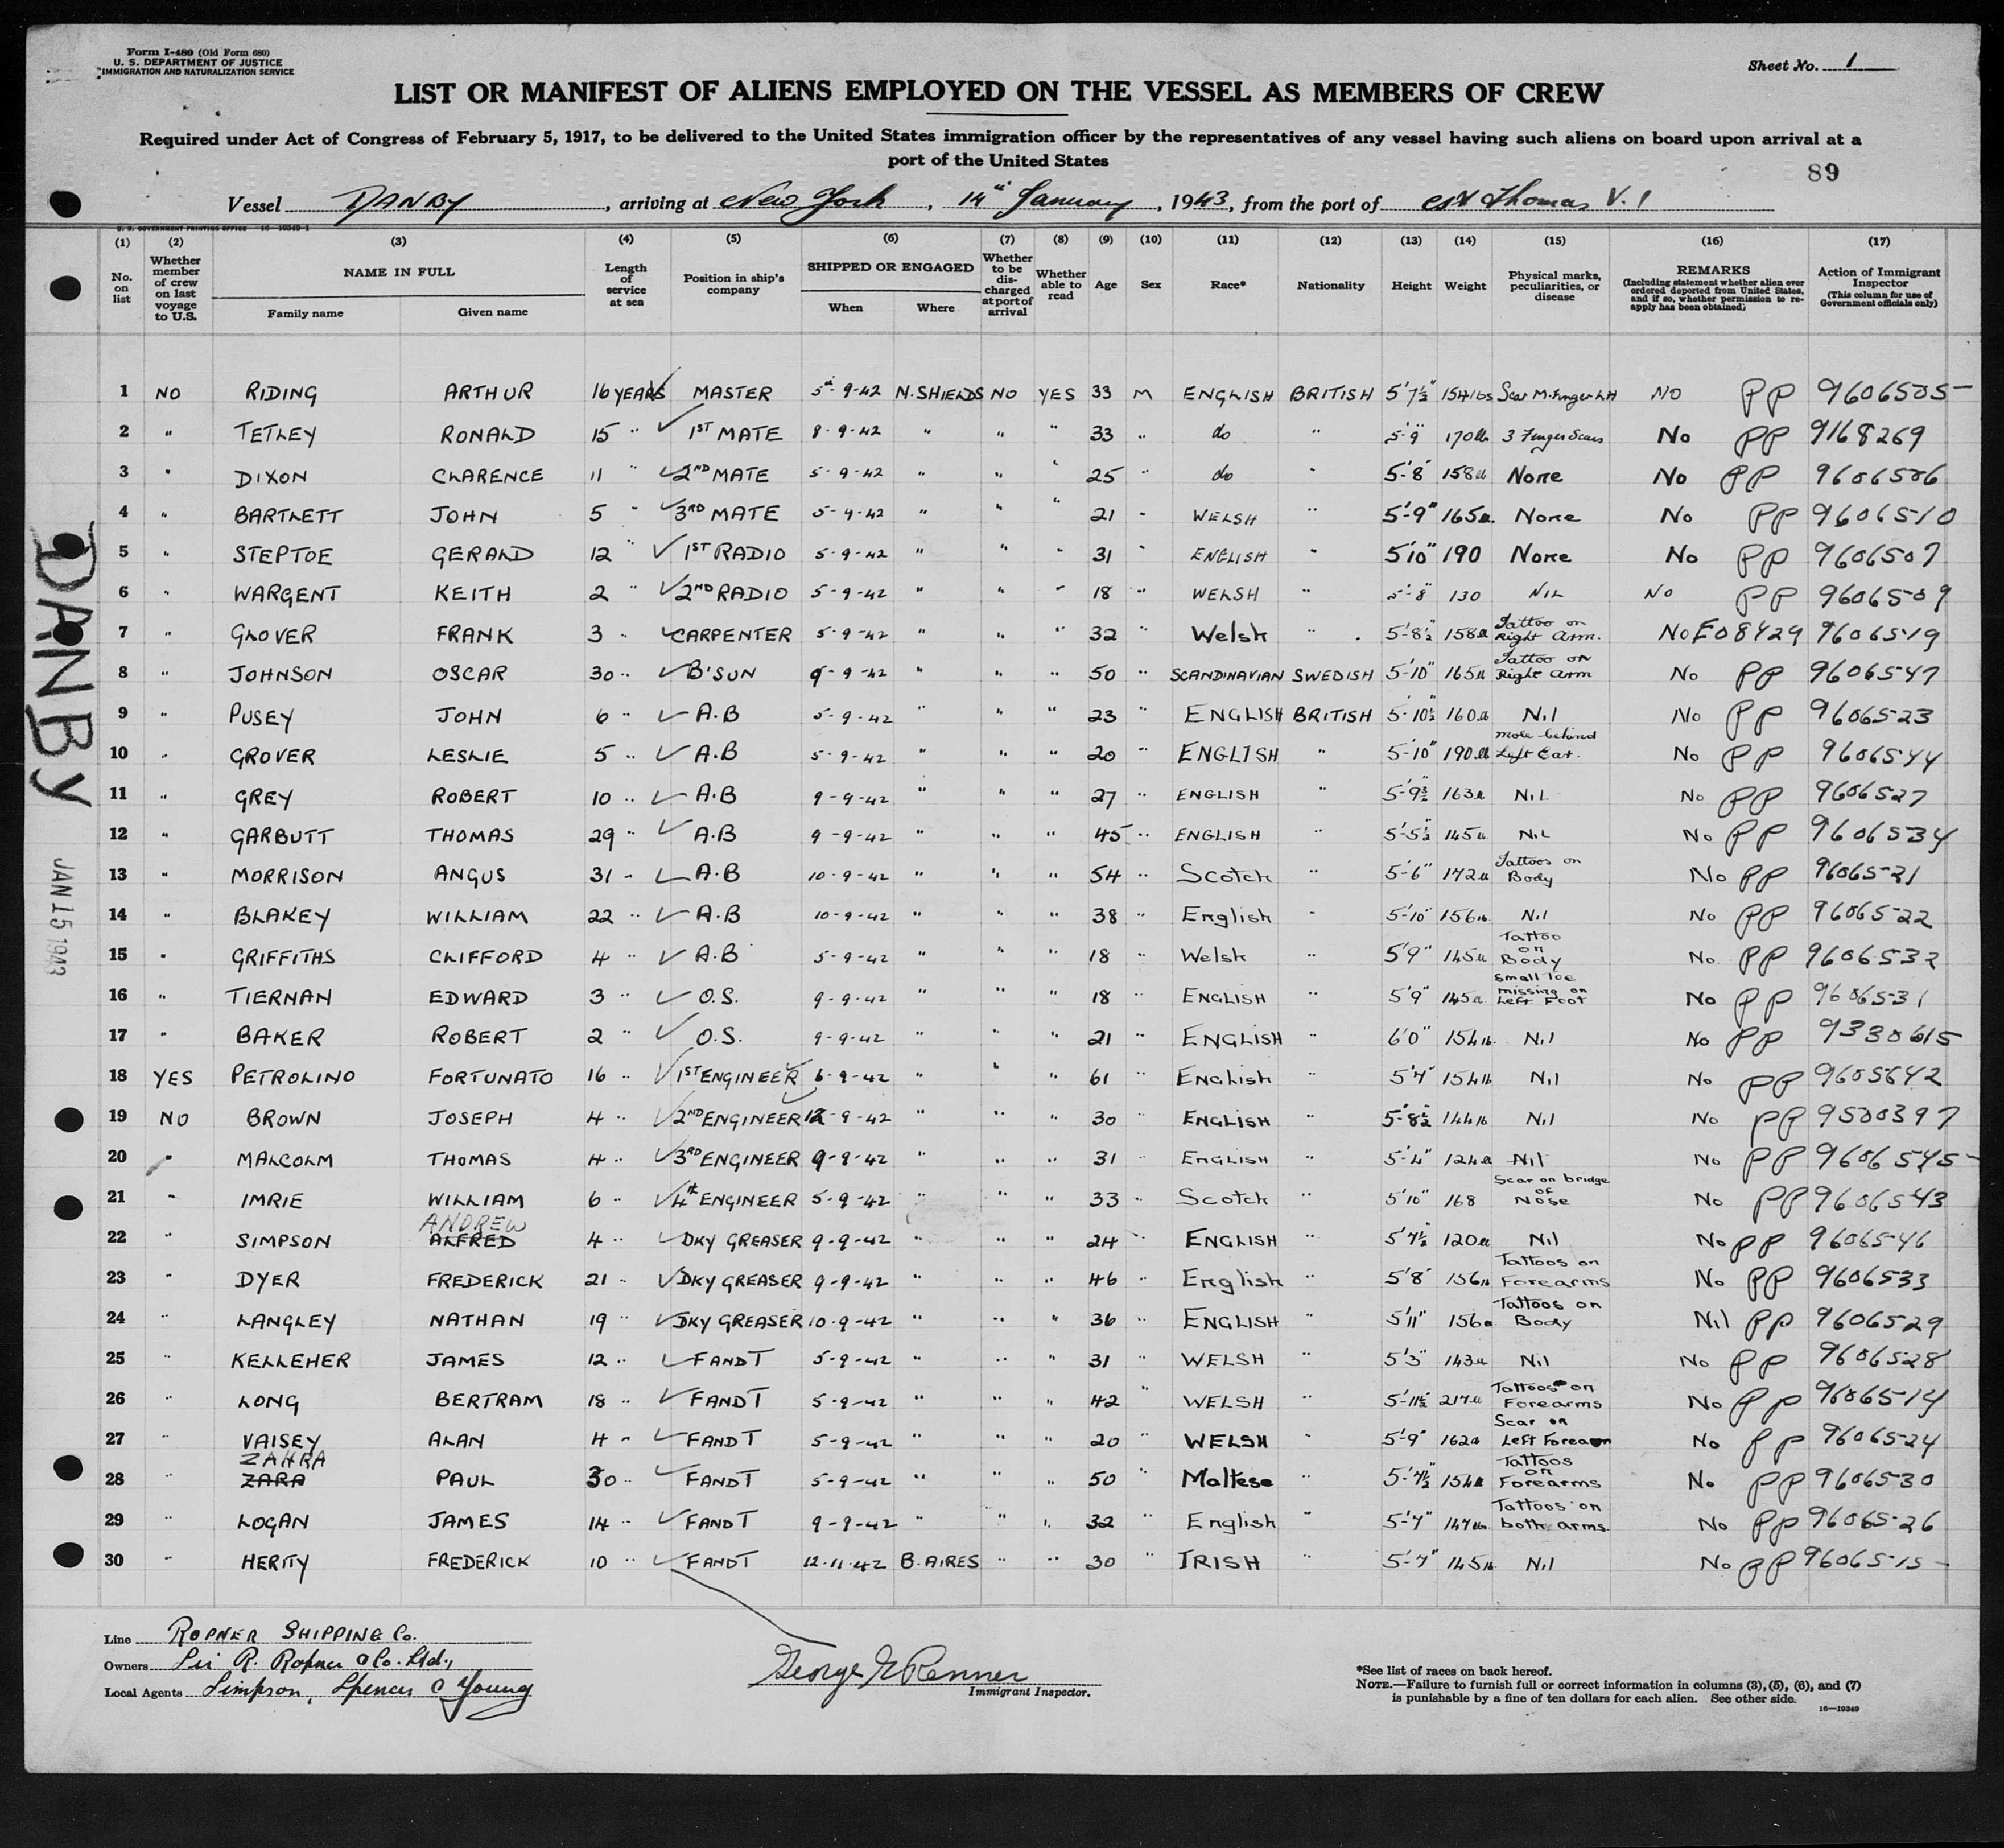 Form I-480 (Old Form 680)
U. S. DEPARTMENT OF JUSTICE
IMMIGRATION AND NATURALIZATION SERVICE
Sheet No. 1
LIST OR MANIFEST OF ALIENS EMPLOYED ON THE VESSEL AS MEMBERS OF CREW
Required under Act of Congress of February 5, 1917, to be delivered to the United States immigration officer by the representatives of any vessel having such aliens on board upon arrival at a
port of the United States
89
Vessel DANBY, arriving at New York, 14th January, 1943, from the port of St Thomas V.I
U. S. GOVERNMENT PRINTING OFFICE 16-19349-1
(1) (2) (3) (4) (5) (6) (7) (8) (9) (10) (11) (12) (13) (14) (15) (16) (17)
No. on list
Whether member of crew on last voyage to U.S.
NAME IN FULL
Family name
Given name
Length of service at sea
Position in ship's company
SHIPPED OR ENGAGED
When
Where
Whether to be discharged at port of arrival
Whether able to read
Age
Sex
Race*
Nationality
Height
Weight
Physical marks, peculiarities, or disease
REMARKS
(Including statement whether alien ever ordered deported from United States, and if so, whether permission to reapply has been obtained)
Action of Immigrant Inspector
(This column for use of Government officials only)
1 NO RIDING ARTHUR 16 YEARS MASTER 5th-9-42 N. SHIELDS NO YES 33 M ENGLISH BRITISH 5'7½" 154lbs Scar M. Finger LH NO PP 9606505
2 " TETLEY RONALD 15 " 1ST MATE 8-9-42 " " " 33 " do " 5'-9" 170lb 3 Finger Scars No PP 9168269
3 " DIXON CLARENCE 11 " 2ND MATE 5-9-42 " " " 25 " do " 5'-8" 158lb None No PP 9606506
4 " BARTLETT JOHN 5 " 3RD MATE 5-9-42 " " " 21 " WELSH " 5'-9" 165lb None No PP 9606510
5 " STEPTOE GERALD 12 " 1ST RADIO 5-9-42 " " " 31 " ENGLISH " 5'10" 190 None No PP 9606507
6 " WARGENT KEITH 2 " 2ND RADIO 5-9-42 " " " 18 " WELSH " 5'-8" 130 NIL No PP 9606509
7 " GLOVER FRANK 3 " CARPENTER 5-9-42 " " " 32 " Welsh " 5'-8½" 158lb Tattoo on Right Arm. No E08429 9606519
8 " JOHNSON OSCAR 30 " B'SUN 9-9-42 " " " 50 " SCANDINAVIAN SWEDISH 5'-10" 165lb Tattoo on Right Arm No PP 9606547
9 " PUSEY JOHN 6 " A.B 5-9-42 " " " 23 " ENGLISH BRITISH 5-10½ 160lb Nil No PP 9606523
10 " GROVER LESLIE 5 " A.B 5-9-42 " " " 20 " ENGLISH " 5'-10" 190lb mole behind Left Ear. No PP 9606544
11 " GREY ROBERT 10 " A.B 9-9-42 " " " 27 " ENGLISH " 5'-9½ 163lb NIL No PP 9606527
12 " GARBUTT THOMAS 29 " A.B 9-9-42 " " " 45 " ENGLISH " 5'-5½ 145lb NIL No PP 9606534
13 " MORRISON ANGUS 31 " A.B 10-9-42 " " " 54 " Scotch " 5'-6" 172lb Tattoos on Body No PP 9606521
14 " BLAKEY WILLIAM 22 " A.B 10-9-42 " " " 38 " English " 5'10" 156lb Nil No PP 9606522
15 " GRIFFITHS CLIFFORD 4 " A.B 5-9-42 " " " 18 " Welsh " 5'9" 145lb Tattoo on Body No PP 9606532
16 " TIERNAN EDWARD 3 " O.S. 9-9-42 " " " 18 " ENGLISH " 5'9" 145lb Small Toe missing on Left Foot No PP 9606531
17 " BAKER ROBERT 2 " O.S. 9-9-42 " " " 21 " ENGLISH " 6'0" 154lb Nil No PP 9330615
18 YES PETROLINO FORTUNATO 16 " 1ST ENGINEER 6-9-42 " " " 61 " English " 5'7" 154lb Nil No PP 9605642
19 NO BROWN JOSEPH 4 " 2ND ENGINEER 12-9-42 " " " 30 " ENGLISH " 5'-8½ 144lb Nil No PP 9500397
20 " MALCOLM THOMAS 4 " 3RD ENGINEER 9-9-42 " " " 31 " English " 5'-4" 124lb Nil No PP 9606545
21 " IMRIE WILLIAM 6 " 4th ENGINEER 5-9-42 " " " 33 " Scotch " 5'10" 168 Scar on bridge of Nose No PP 9606543
22 " SIMPSON ANDREW ALFRED 4 " DKY GREASER 9-9-42 " " " 24 " ENGLISH " 5'7½ 120lb Nil No PP 9606546
23 " DYER FREDERICK 21 " DKY GREASER 9-9-42 " " " 46 " English " 5'8" 156lb Tattoos on Forearms No PP 9606533
24 " LANGLEY NATHAN 19 " DKY GREASER 10-9-42 " " " 36 " ENGLISH " 5'11" 156lb Tattoos on Body Nil PP 9606529
25 " KELLEHER JAMES 12 " F AND T 5-9-42 " " " 31 " WELSH " 5'3" 143lb Nil No PP 9606528
26 " LONG BERTRAM 18 " F AND T 5-9-42 " " " 42 " WELSH " 5'-11½ 217lb Tattoos on Forearms No PP 9606514
27 " VAISEY ALAN 4 " F AND T 5-9-42 " " " 20 " WELSH " 5'-9" 162lb Scar on Left Forearm No PP 9606524
28 " ZAHRA ZARA PAUL 30 " F AND T 5-9-42 " " " 50 " Maltese " 5'-7½ 154lb Tattoos on Forearms No PP 9606530
29 " LOGAN JAMES 14 " F AND T 9-9-42 " " " 32 " English " 5'-7" 147lb Tattoos on both arms No PP 9606526
30 " HERITY FREDERICK 10 " F AND T 12-11-42 B. AIRES " " 30 " IRISH " 5'-7" 145lb Nil No PP 9606515
DANBY
JAN 15 1943
Line ROPNER SHIPPING Co.
Owners Sir R. Ropner & Co. Ltd.,
Local Agents Simpson, Spence & Young
George E Renner
Immigrant Inspector.
*See list of races on back hereof.
NOTE.—Failure to furnish full or correct information in columns (3), (5), (6), and (7)
is punishable by a fine of ten dollars for each alien. See other side.
16—19349